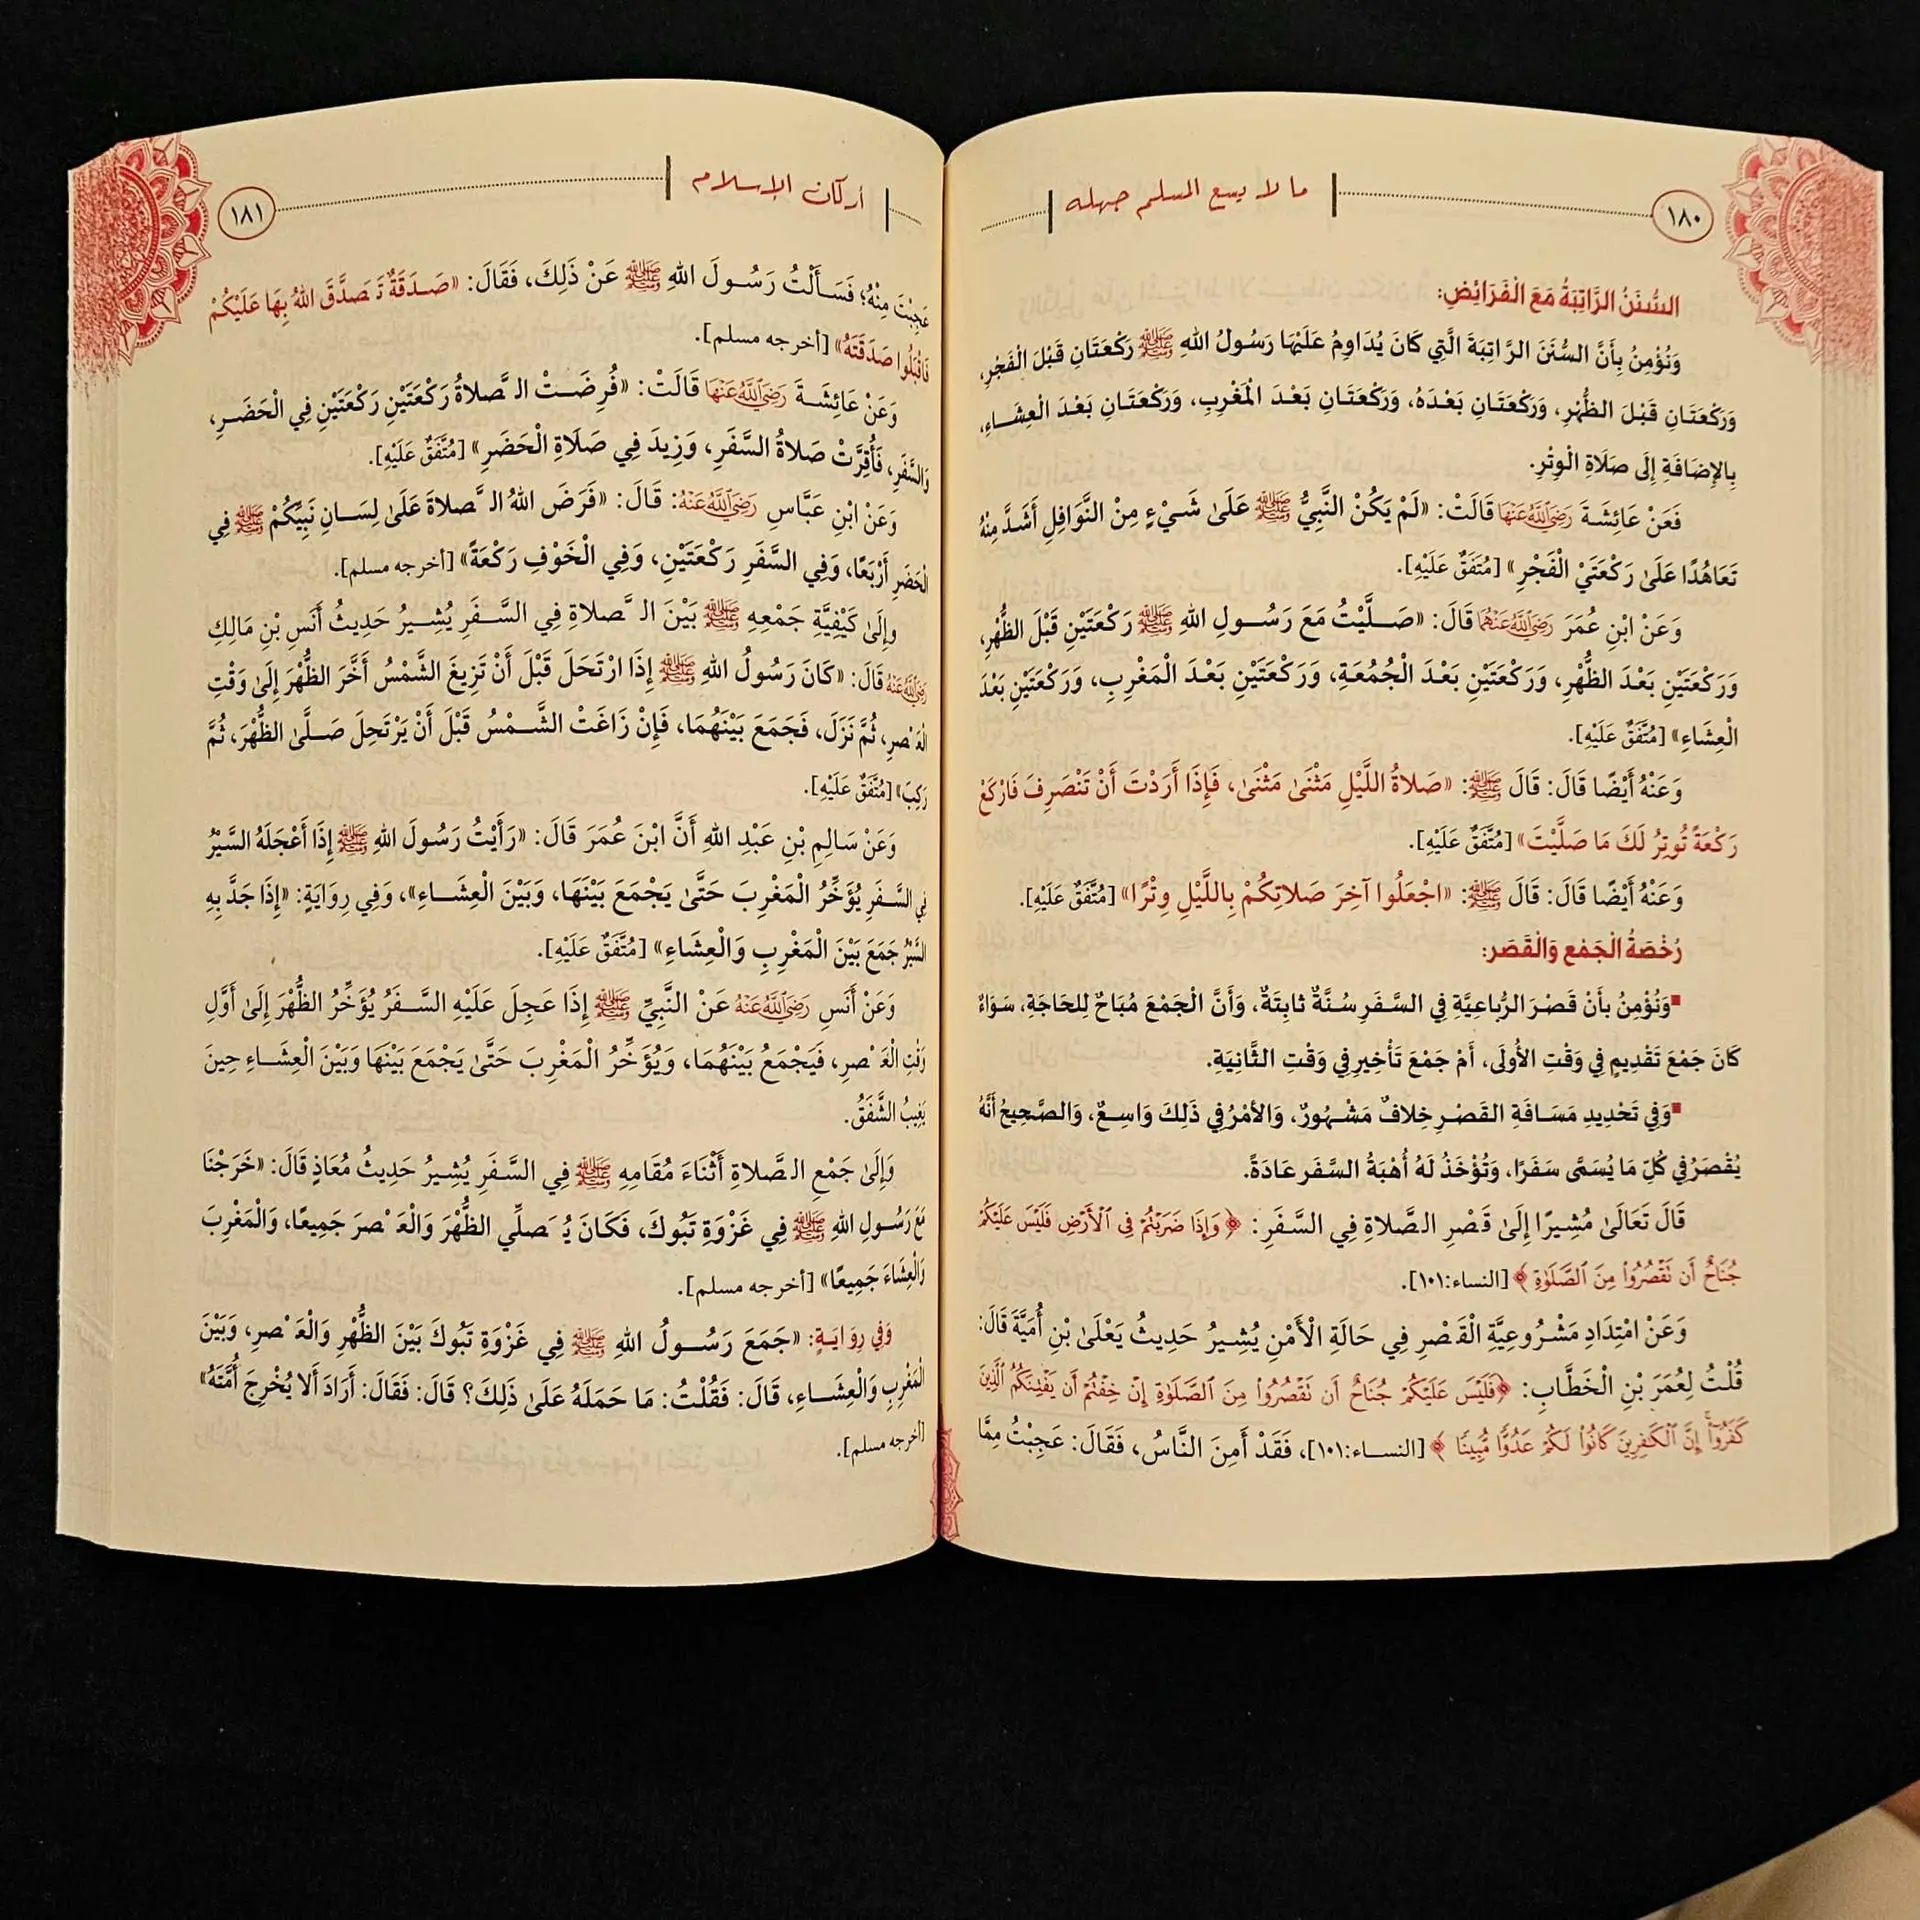 ١٨٠
ما لا يسع المسلم جهله
السُّنَنُ الرَّاتِبَةُ مَعَ الْفَرَائِضِ:
وَنُؤْمِنُ بِأَنَّ السُّنَنَ الرَّاتِبَةَ الَّتِي كَانَ يُدَاوِمُ عَلَيْهَا رَسُولُ اللهِ ﷺ رَكْعَتَانِ قَبْلَ الْفَجْرِ،
وَرَكْعَتَانِ قَبْلَ الظُّهْرِ، وَرَكْعَتَانِ بَعْدَهُ، وَرَكْعَتَانِ بَعْدَ الْمَغْرِبِ، وَرَكْعَتَانِ بَعْدَ الْعِشَاءِ،
بِالإِضَافَةِ إِلَى صَلَاةِ الْوِتْرِ.
فَعَنْ عَائِشَةَ رَضِيَ اللَّهُ عَنْهَا قَالَتْ: «لَمْ يَكُنْ النَّبِيُّ ﷺ عَلَىٰ شَيْءٍ مِنْ النَّوَافِلِ أَشَدَّ مِنْهُ
تَعَاهُدًا عَلَىٰ رَكْعَتَيْ الْفَجْرِ» [مُتَّفَقٌ عَلَيْهِ].
وَعَنْ ابْنِ عُمَرَ رَضِيَ اللَّهُ عَنْهُمَا قَالَ: «صَلَّيْتُ مَعَ رَسُولِ اللهِ ﷺ رَكْعَتَيْنِ قَبْلَ الظُّهْرِ،
وَرَكْعَتَيْنِ بَعْدَ الظُّهْرِ، وَرَكْعَتَيْنِ بَعْدَ الْجُمُعَةِ، وَرَكْعَتَيْنِ بَعْدَ الْمَغْرِبِ، وَرَكْعَتَيْنِ بَعْدَ
الْعِشَاءِ» [مُتَّفَقٌ عَلَيْهِ].
وَعَنْهُ أَيْضًا قَالَ: قَالَ ﷺ: «صَلَاةُ اللَّيْلِ مَثْنَىٰ مَثْنَىٰ، فَإِذَا أَرَدْتَ أَنْ تَنْصَرِفَ فَارْكَعْ
رَكْعَةً تُوتِرُ لَكَ مَا صَلَّيْتَ» [مُتَّفَقٌ عَلَيْهِ].
وَعَنْهُ أَيْضًا قَالَ: قَالَ ﷺ: «اجْعَلُوا آخِرَ صَلَاتِكُمْ بِاللَّيْلِ وِتْرًا» [مُتَّفَقٌ عَلَيْهِ].
رُخْصَةُ الْجَمْعِ وَالْقَصْرِ:
▪ وَنُؤْمِنُ بِأَنَّ قَصْرَ الرُّبَاعِيَّةِ فِي السَّفَرِ سُنَّةٌ ثَابِتَةٌ، وَأَنَّ الْجَمْعَ مُبَاحٌ لِلحَاجَةِ، سَوَاءٌ
كَانَ جَمْعَ تَقْدِيمٍ فِي وَقْتِ الأُولَى، أَمْ جَمْعَ تَأْخِيرٍ فِي وَقْتِ الثَّانِيَةِ.
▪ وَفِي تَحْدِيدِ مَسَافَةِ القَصْرِ خِلافٌ مَشْهُورٌ، وَالأَمْرُ فِي ذَلِكَ وَاسِعٌ، وَالصَّحِيحُ أَنَّهُ
يُقْصَرُ فِي كُلِّ مَا يُسَمَّى سَفَرًا، وَتُؤْخَذُ لَهُ أُهْبَةُ السَّفَرِ عَادَةً.
قَالَ تَعَالَىٰ مُشِيرًا إِلَىٰ قَصْرِ الصَّلَاةِ فِي السَّفَرِ: ﴿وَإِذَا ضَرَبْتُمْ فِي ٱلْأَرْضِ فَلَيْسَ عَلَيْكُمْ
جُنَاحٌ أَن تَقْصُرُوا۟ مِنَ ٱلصَّلَوٰةِ﴾ [النساء:١٠١].
وَعَنْ امْتِدَادِ مَشْرُوعِيَّةِ الْقَصْرِ فِي حَالَةِ الْأَمْنِ يُشِيرُ حَدِيثُ يَعْلَىٰ بْنِ أُمَيَّةَ قَالَ:
قُلْتُ لِعُمَرَ بْنِ الْخَطَّابِ: ﴿فَلَيْسَ عَلَيْكُمْ جُنَاحٌ أَن تَقْصُرُوا۟ مِنَ ٱلصَّلَوٰةِ إِنْ خِفْتُمْ أَن يَفْتِنَكُمُ ٱلَّذِينَ
كَفَرُوٓا۟ إِنَّ ٱلْكَٰفِرِينَ كَانُوا۟ لَكُمْ عَدُوًّا مُّبِينًا﴾ [النساء:١٠١]، فَقَدْ أَمِنَ النَّاسُ، فَقَالَ: عَجِبْتُ مِمَّا
أركان الإسلام
١٨١
عَجِبْتَ مِنْهُ؛ فَسَأَلْتُ رَسُولَ اللهِ ﷺ عَنْ ذَلِكَ، فَقَالَ: «صَدَقَةٌ تَصَدَّقَ اللهُ بِهَا عَلَيْكُمْ
فَاقْبَلُوا صَدَقَتَهُ» [أخرجه مسلم].
وَعَنْ عَائِشَةَ رَضِيَ اللَّهُ عَنْهَا قَالَتْ: «فُرِضَتْ الصَّلاةُ رَكْعَتَيْنِ رَكْعَتَيْنِ فِي الْحَضَرِ،
وَالسَّفَرِ، فَأُقِرَّتْ صَلاةُ السَّفَرِ، وَزِيدَ فِي صَلَاةِ الْحَضَرِ» [مُتَّفَقٌ عَلَيْهِ].
وَعَنْ ابْنِ عَبَّاسٍ رَضِيَ اللَّهُ عَنْهُ: قَالَ: «فَرَضَ اللهُ الصَّلاةَ عَلَىٰ لِسَانِ نَبِيِّكُمْ ﷺ فِي
الْحَضَرِ أَرْبَعًا، وَفِي السَّفَرِ رَكْعَتَيْنِ، وَفِي الْخَوْفِ رَكْعَةً» [أخرجه مسلم].
وإِلَىٰ كَيْفِيَّةِ جَمْعِهِ ﷺ بَيْنَ الصَّلاةِ فِي السَّفَرِ يُشِيرُ حَدِيثُ أَنَسِ بْنِ مَالِكٍ
رَضِيَ اللَّهُ عَنْهُ قَالَ: «كَانَ رَسُولُ اللهِ ﷺ إِذَا ارْتَحَلَ قَبْلَ أَنْ تَزِيغَ الشَّمْسُ أَخَّرَ الظُّهْرَ إِلَىٰ وَقْتِ
الْعَصْرِ، ثُمَّ نَزَلَ، فَجَمَعَ بَيْنَهُمَا، فَإِنْ زَاغَتْ الشَّمْسُ قَبْلَ أَنْ يَرْتَحِلَ صَلَّىٰ الظُّهْرَ، ثُمَّ
رَكِبَ» [مُتَّفَقٌ عَلَيْهِ].
وَعَنْ سَالِمِ بْنِ عَبْدِ اللهِ أَنَّ ابْنَ عُمَرَ قَالَ: «رَأَيْتُ رَسُولَ اللهِ ﷺ إِذَا أَعْجَلَهُ السَّيْرُ
فِي السَّفَرِ يُؤَخِّرُ الْمَغْرِبَ حَتَّىٰ يَجْمَعَ بَيْنَهَا، وَبَيْنَ الْعِشَاءِ»، وَفِي رِوَايَةٍ: «إِذَا جَدَّ بِهِ
السَّيْرُ جَمَعَ بَيْنَ الْمَغْرِبِ وَالْعِشَاءِ» [مُتَّفَقٌ عَلَيْهِ].
وَعَنْ أَنَسٍ رَضِيَ اللَّهُ عَنْهُ عَنْ النَّبِيِّ ﷺ إِذَا عَجِلَ عَلَيْهِ السَّفَرُ يُؤَخِّرُ الظُّهْرَ إِلَىٰ أَوَّلِ
وَقْتِ الْعَصْرِ، فَيَجْمَعُ بَيْنَهُمَا، وَيُؤَخِّرُ الْمَغْرِبَ حَتَّىٰ يَجْمَعَ بَيْنَهَا وَبَيْنَ الْعِشَاءِ حِينَ
يَغِيبُ الشَّفَقُ.
وَإِلَىٰ جَمْعِ الصَّلاةِ أَثْنَاءَ مُقَامِهِ ﷺ فِي السَّفَرِ يُشِيرُ حَدِيثُ مُعَاذٍ قَالَ: «خَرَجْنَا
مَعَ رَسُولِ اللهِ ﷺ فِي غَزْوَةِ تَبُوكَ، فَكَانَ يُصَلِّي الظُّهْرَ وَالْعَصْرَ جَمِيعًا، وَالْمَغْرِبَ
وَالْعِشَاءَ جَمِيعًا» [أخرجه مسلم].
وَفِي رِوَايَةٍ: «جَمَعَ رَسُولُ اللهِ ﷺ فِي غَزْوَةِ تَبُوكَ بَيْنَ الظُّهْرِ وَالْعَصْرِ، وَبَيْنَ
الْمَغْرِبِ وَالْعِشَاءِ، قَالَ: فَقُلْتُ: مَا حَمَلَهُ عَلَىٰ ذَلِكَ؟ قَالَ: فَقَالَ: أَرَادَ أَلا يُحْرِجَ أُمَّتَهُ»
[أخرجه مسلم].